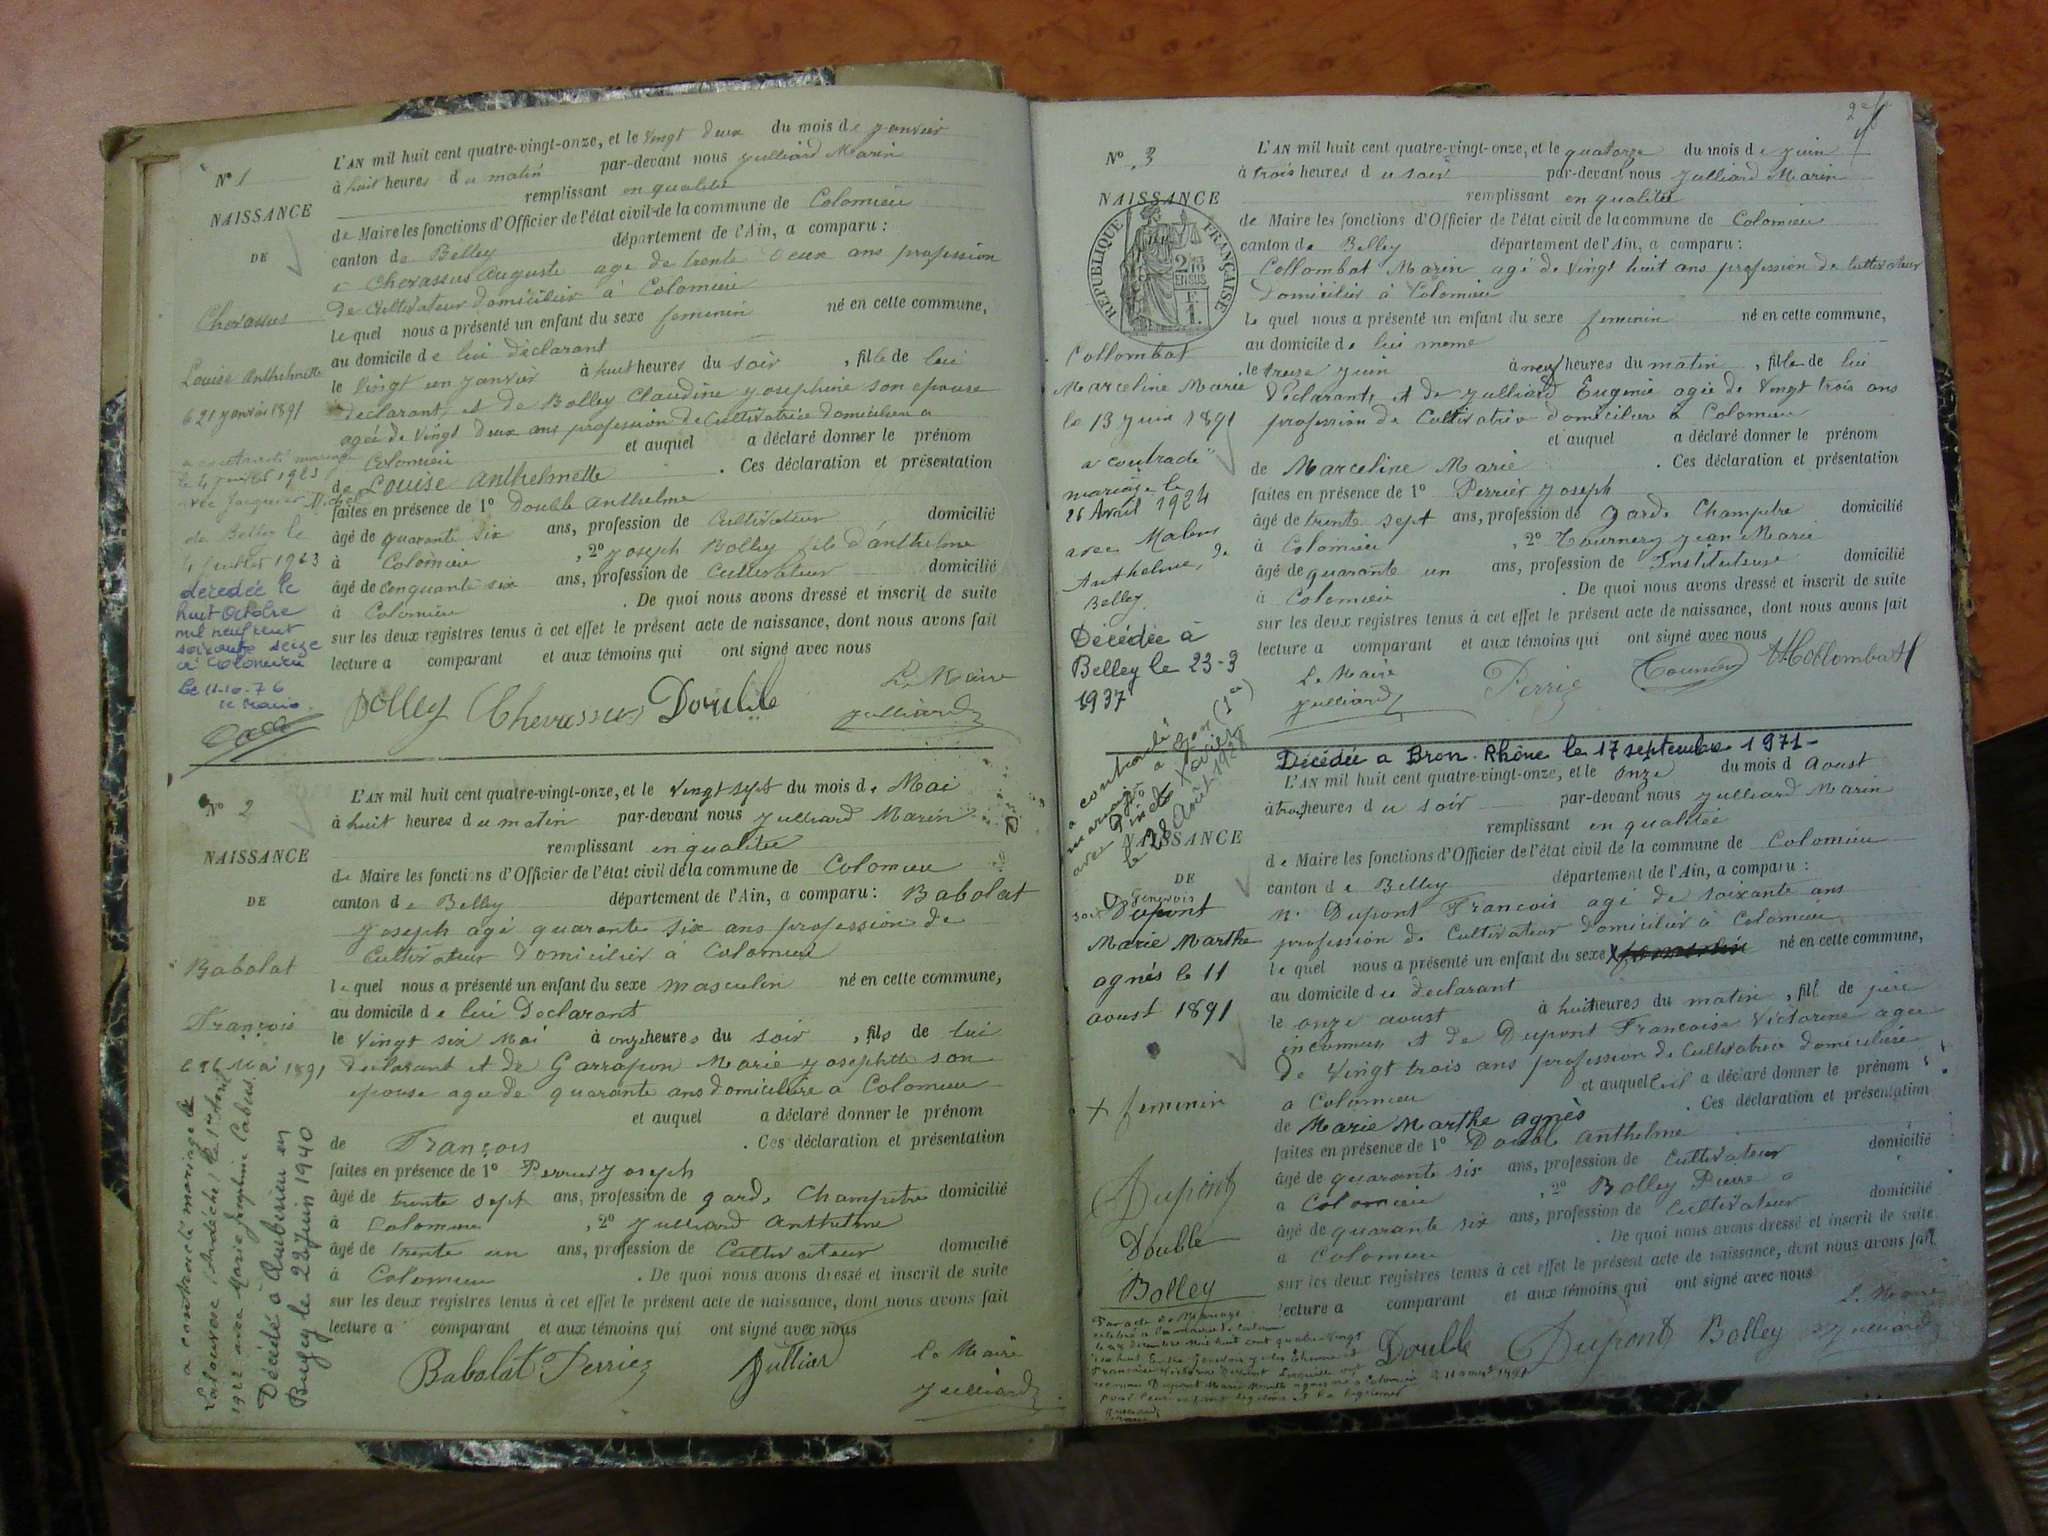 N° 1
NAISSANCE
DE
Chevassus
Louise Anthelmette
le 21 janvier 1891
a contracté mariage
le 4 juillet 1923
avec Jacquier
de Belley le
4 juillet 1923
décédée le
huit Octobre
mil neuf cent
soixante seize
à Colomieu
Le 11-10-76
le Maire
L'AN mil huit cent quatre-vingt-onze, et le Vingt deux du mois de janvier
à huit heures du matin par-devant nous Julliard Marin
remplissant en qualité
de Maire les fonctions d'Officier de l'état civil de la commune de Colomieu
canton de Belley département de l'Ain, a comparu :
Chevassus Auguste age de trente deux ans profession
de Cultivateur domicilier à Colomieu
le quel nous a présenté un enfant du sexe feminin né en cette commune,
au domicile de lui déclarant
le Vingt un janvier à huit heures du soir, fille de lui
declarant, et de Bolley Claudine josephine son epouse
agée de Vingt deux ans profession de Cultivatrice domiciliée a
Colomieu et auquel a déclaré donner le prénom
de Louise Anthelmette. Ces déclaration et présentation
faites en présence de 1° Double anthelme
âgé de quarante six ans, profession de Cultivateur domicilié
à Colomieu, 2° joseph Bolley fils d'anthelme
âgé de conquante six ans, profession de Cultivateur domicilié
à Colomieu. De quoi nous avons dressé et inscrit de suite
sur les deux registres tenus à cet effet le présent acte de naissance, dont nous avons fait
lecture a comparant et aux témoins qui ont signé avec nous
Le Maire
Bolley Chevassus Double Julliard
N° 2
NAISSANCE
DE
Babolat
François
le 26 Mai 1891
a contracté mariage à
Lalouvesc (Ardèche) le 1er Avril
1922 avec Marie Josephine Cabeus.
Décédé à Ambérieu en
Bugey le 23 juin 1940
L'AN mil huit cent quatre-vingt-onze, et le Vingt sept du mois de Mai
à huit heures du matin par-devant nous Julliard Marin
remplissant en qualitée
de Maire les fonctions d'Officier de l'état civil de la commune de Colomieu
canton de Belley département de l'Ain, a comparu : Babolat
Joseph agé quarante six ans profession de
Cultivateur domicilier à Colomieu
le quel nous a présenté un enfant du sexe masculin né en cette commune,
au domicile de lui Declarant
le Vingt six Mai à onze heures du soir, fils de lui
declarant et de Garrapon Marie josephtte son
epouse agée de quarante ans domiciliée a Colomieu
et auquel a déclaré donner le prénom
de François. Ces déclaration et présentation
faites en présence de 1° Perrier Joseph
âgé de trente sept ans, profession de garde Champetre domicilié
à Colomieu, 2° Julliard Anthelme
âgé de trente un ans, profession de Cultivateur domicilié
à Colomieu. De quoi nous avons dressé et inscrit de suite
sur les deux registres tenus à cet effet le présent acte de naissance, dont nous avons fait
lecture a comparant et aux témoins qui ont signé avec nous
Le Maire
Babolat Perrier Julliard Julliard
N° 3
NAISSANCE
RÉPUBLIQUE FRANÇAISE
2/10 EN SUS
Collombat
Marceline Marie
le 13 juin 1891
a contracté
mariage le
26 Avril 1924
avec
Anthelme, de
Belley.
Décédée à
Belley le 23-3
1937
L'AN mil huit cent quatre-vingt-onze, et le quatorze du mois de juin
à trois heures du soir par-devant nous Julliard Marin
remplissant en qualitée
de Maire les fonctions d'Officier de l'état civil de la commune de Colomieu
canton de Belley département de l'Ain, a comparu :
Collombat Marin agé de Vingt huit ans profession de Cultivateur
Domicilier à Colomieu
le quel nous a présenté un enfant du sexe feminin né en cette commune,
au domicile de lui meme
le treize juin à neuf heures du matin, fille de lui
Déclarant, et de Julliard Eugenie agée de Vingt trois ans
profession de Cultivatrice domiciliere à Colomieu
et auquel a déclaré donner le prénom
de Marceline Marie. Ces déclaration et présentation
faites en présence de 1° Perrier Joseph
âgé de trente sept ans, profession de garde Champetre domicilié
à Colomieu, 2° Tournery jean Marie
âgé de quarante un ans, profession de Instituteur domicilié
à Colomieu. De quoi nous avons dressé et inscrit de suite
sur les deux registres tenus à cet effet le présent acte de naissance, dont nous avons fait
lecture a comparant et aux témoins qui ont signé avec nous
Le Maire
Julliard Perrier Tournery Collombat
Décédée à Bron. Rhône le 17 septembre 1971-
a contracté
mariage à Lyon (1er)
avec
le 28 Août 1928
NAISSANCE
DE
Genevois
soit Dupont
Marie Marthe
agnès le 11
aoust 1891
+ feminin
Dupont
Double
Bolley
Par acte de Mariage
L'AN mil huit cent quatre-vingt-onze, et le onze du mois d Aoust
à trois heures du soir par-devant nous Julliard Marin
remplissant en qualitée
de Maire les fonctions d'Officier de l'état civil de la commune de Colomieu
canton de Belley département de l'Ain, a comparu :
Dupont Francois agé de soixante ans
profession de Cultivateur Domicilier à Colomieu
le quel nous a présenté un enfant du sexe né en cette commune,
au domicile du declarant
le onze aoust à huit heures du matin, fille de père
inconnus et de Dupont Francoise Victorine agée
de Vingt trois ans profession de Cultivatrice domiciliée
a Colomieu et auquel il a déclaré donner le prénom
de Marie Marthe agnès. Ces déclaration et présentation
faites en présence de 1° Double anthelme
âgé de quarante six ans, profession de Cultivateur domicilié
a Colomieu, 2° Bolley Pierre
âgé de quarante six ans, profession de Cultivateur domicilié
a Colomieu. De quoi nous avons dressé et inscrit de suite
sur les deux registres tenus à cet effet le présent acte de naissance, dont nous avons fait
lecture a comparant et aux témoins qui ont signé avec nous
Le Maire
Double Dupont Bolley Julliard